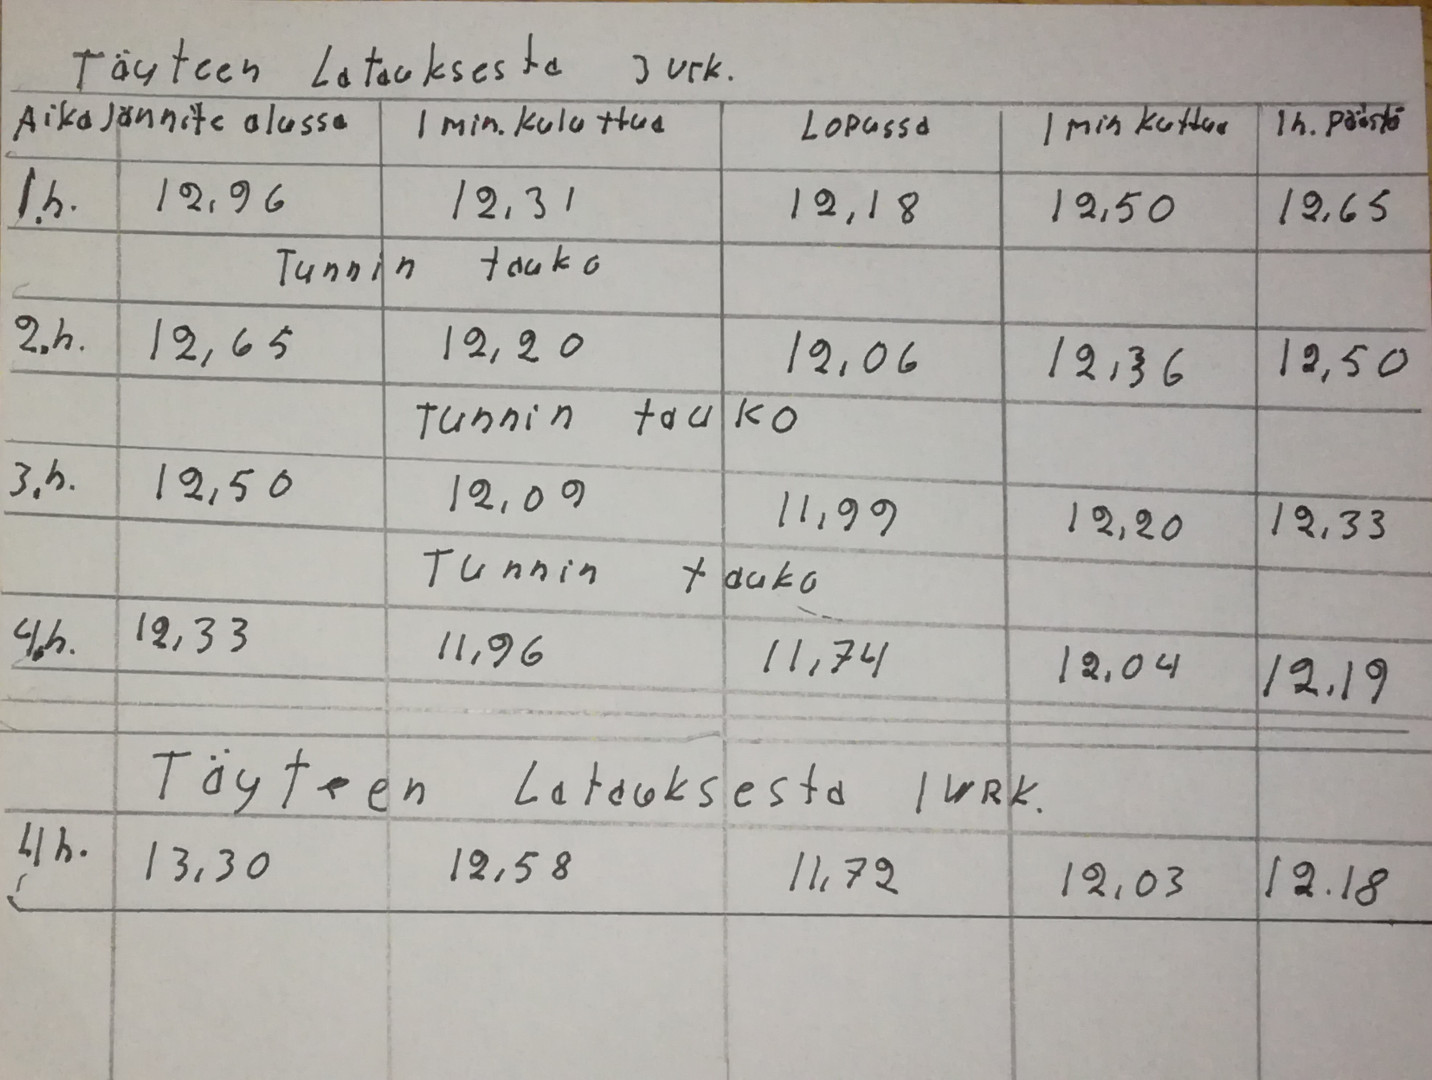 Täyteen Latauksesta 3 vrk.
Aika Jännite alussa 1 min. kuluttua Lopussa 1 min kuttua 1h. päästä
1.h. 12,96 12,31 12,18 12,50 12,65
Tunnin tauko
2.h. 12,65 12,20 12,06 12,36 12,50
Tunnin tauko
3.h. 12,50 12,09 11,99 12,20 12,33
Tunnin tauko
4.h. 12,33 11,96 11,74 12,04 12.19
Täyteen Latauksesta 1 VRK.
4h. 13,30 12,58 11,72 12,03 12.18